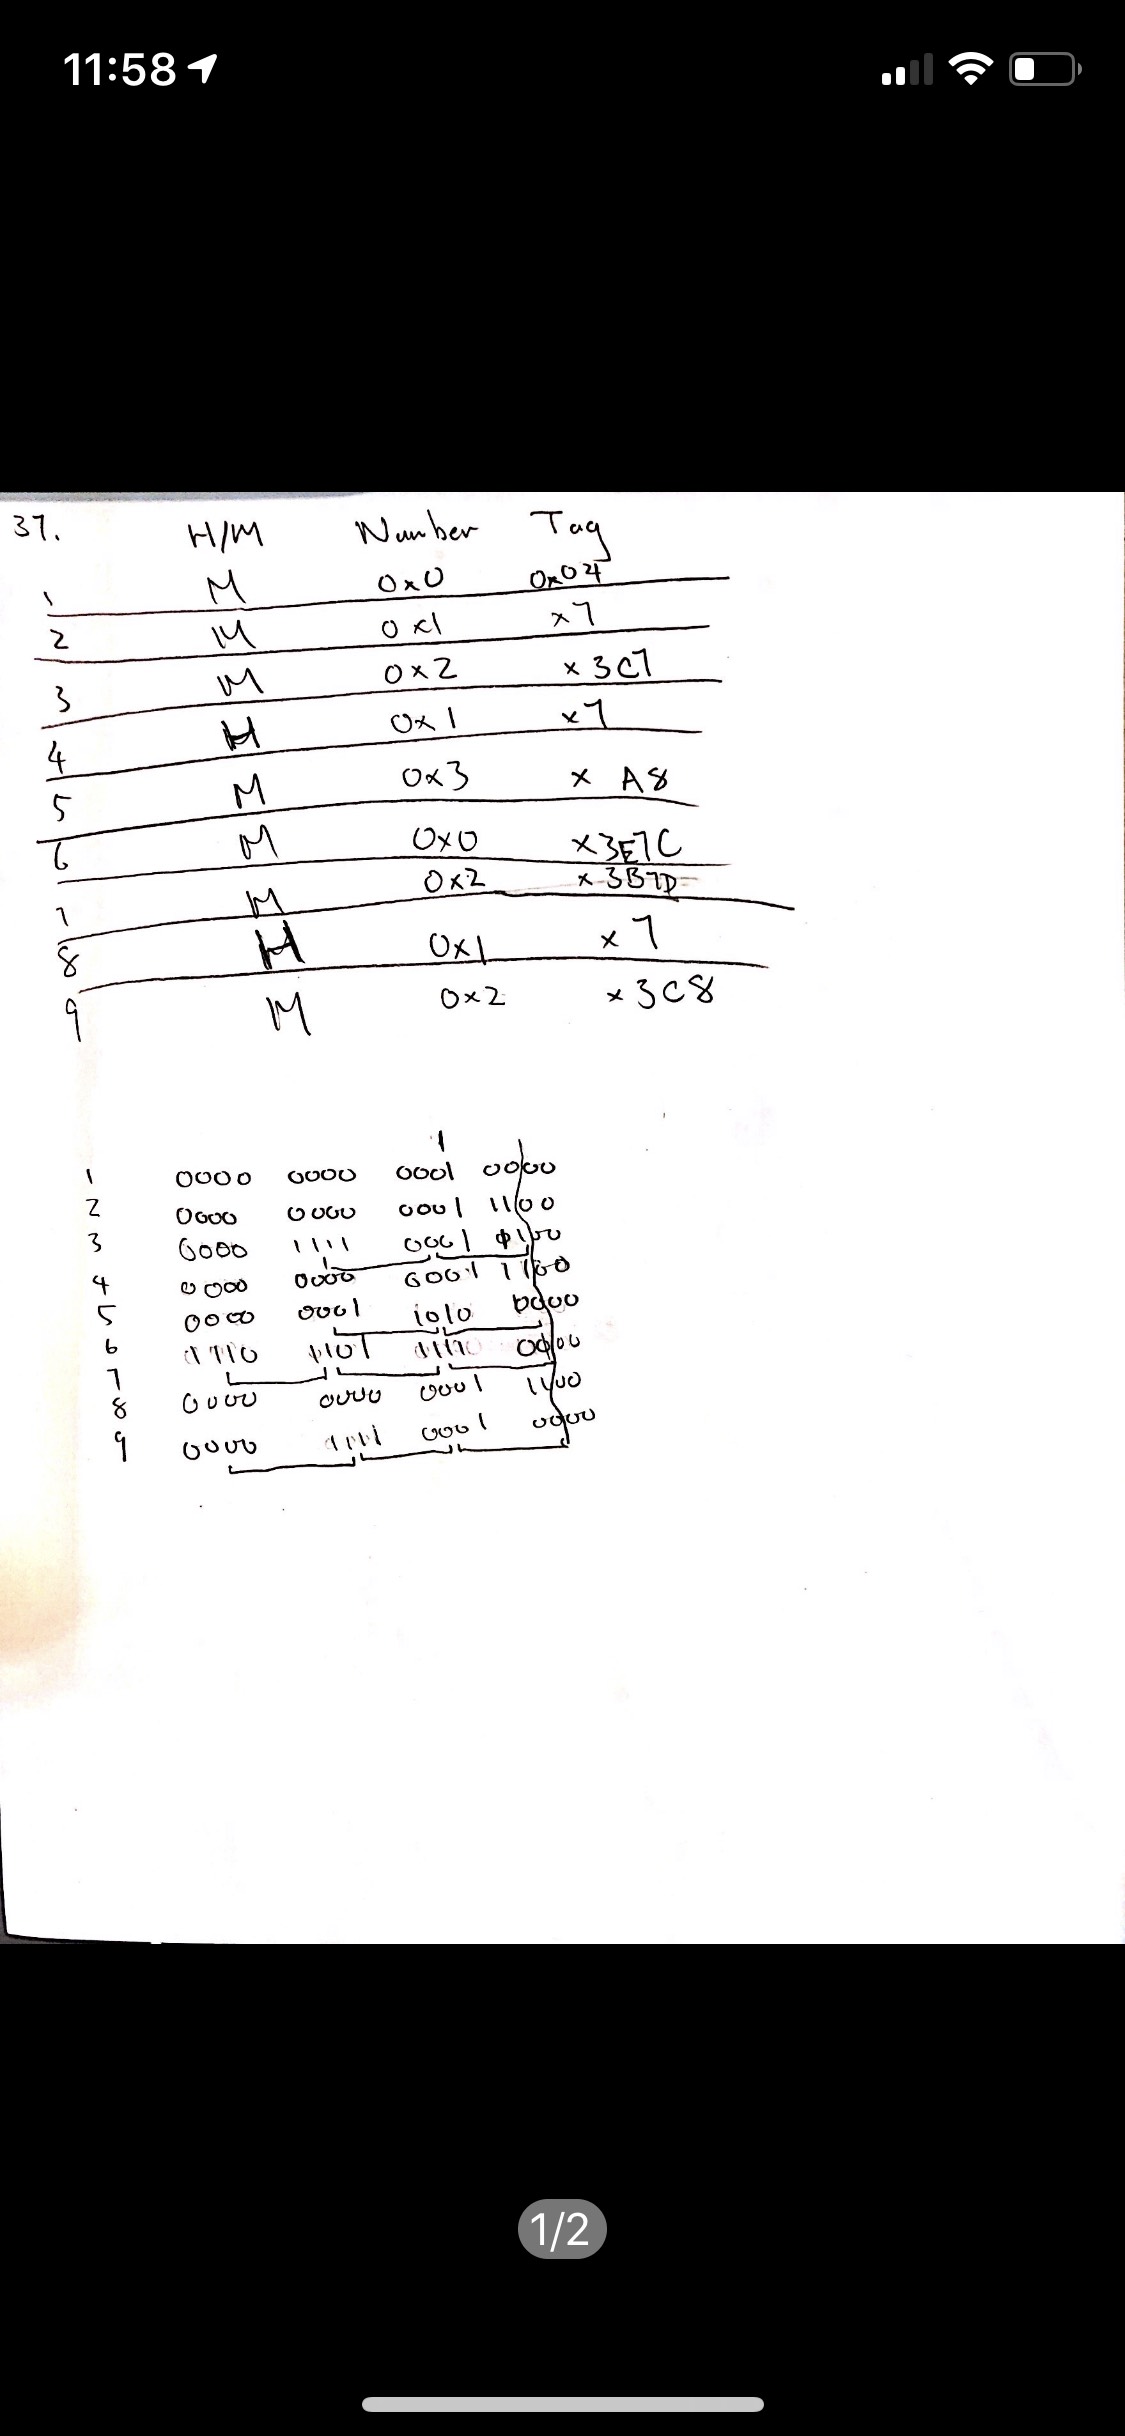 11:58
37. H/M Number Tag
1 M 0x0 0x04
2 M 0x1 x7
3 M 0x2 x3C7
4 H 0x1 x7
5 M 0x3 x A8
6 M 0x0 x3E7C
7 M 0x2 x3B7D
8 H 0x1 x7
9 M 0x2 x3C8
1
1 0000 0000 0001 0000
2 0000 0000 0001 1100
3 0000 1111 0001 1100
4 0000 0000 0001 1100
5 0000 0001 1010 0000
6 1110 1101 11110 0000
7
8 0000 0000 0001 1100
9 0000 1111 0001 0000
1/2